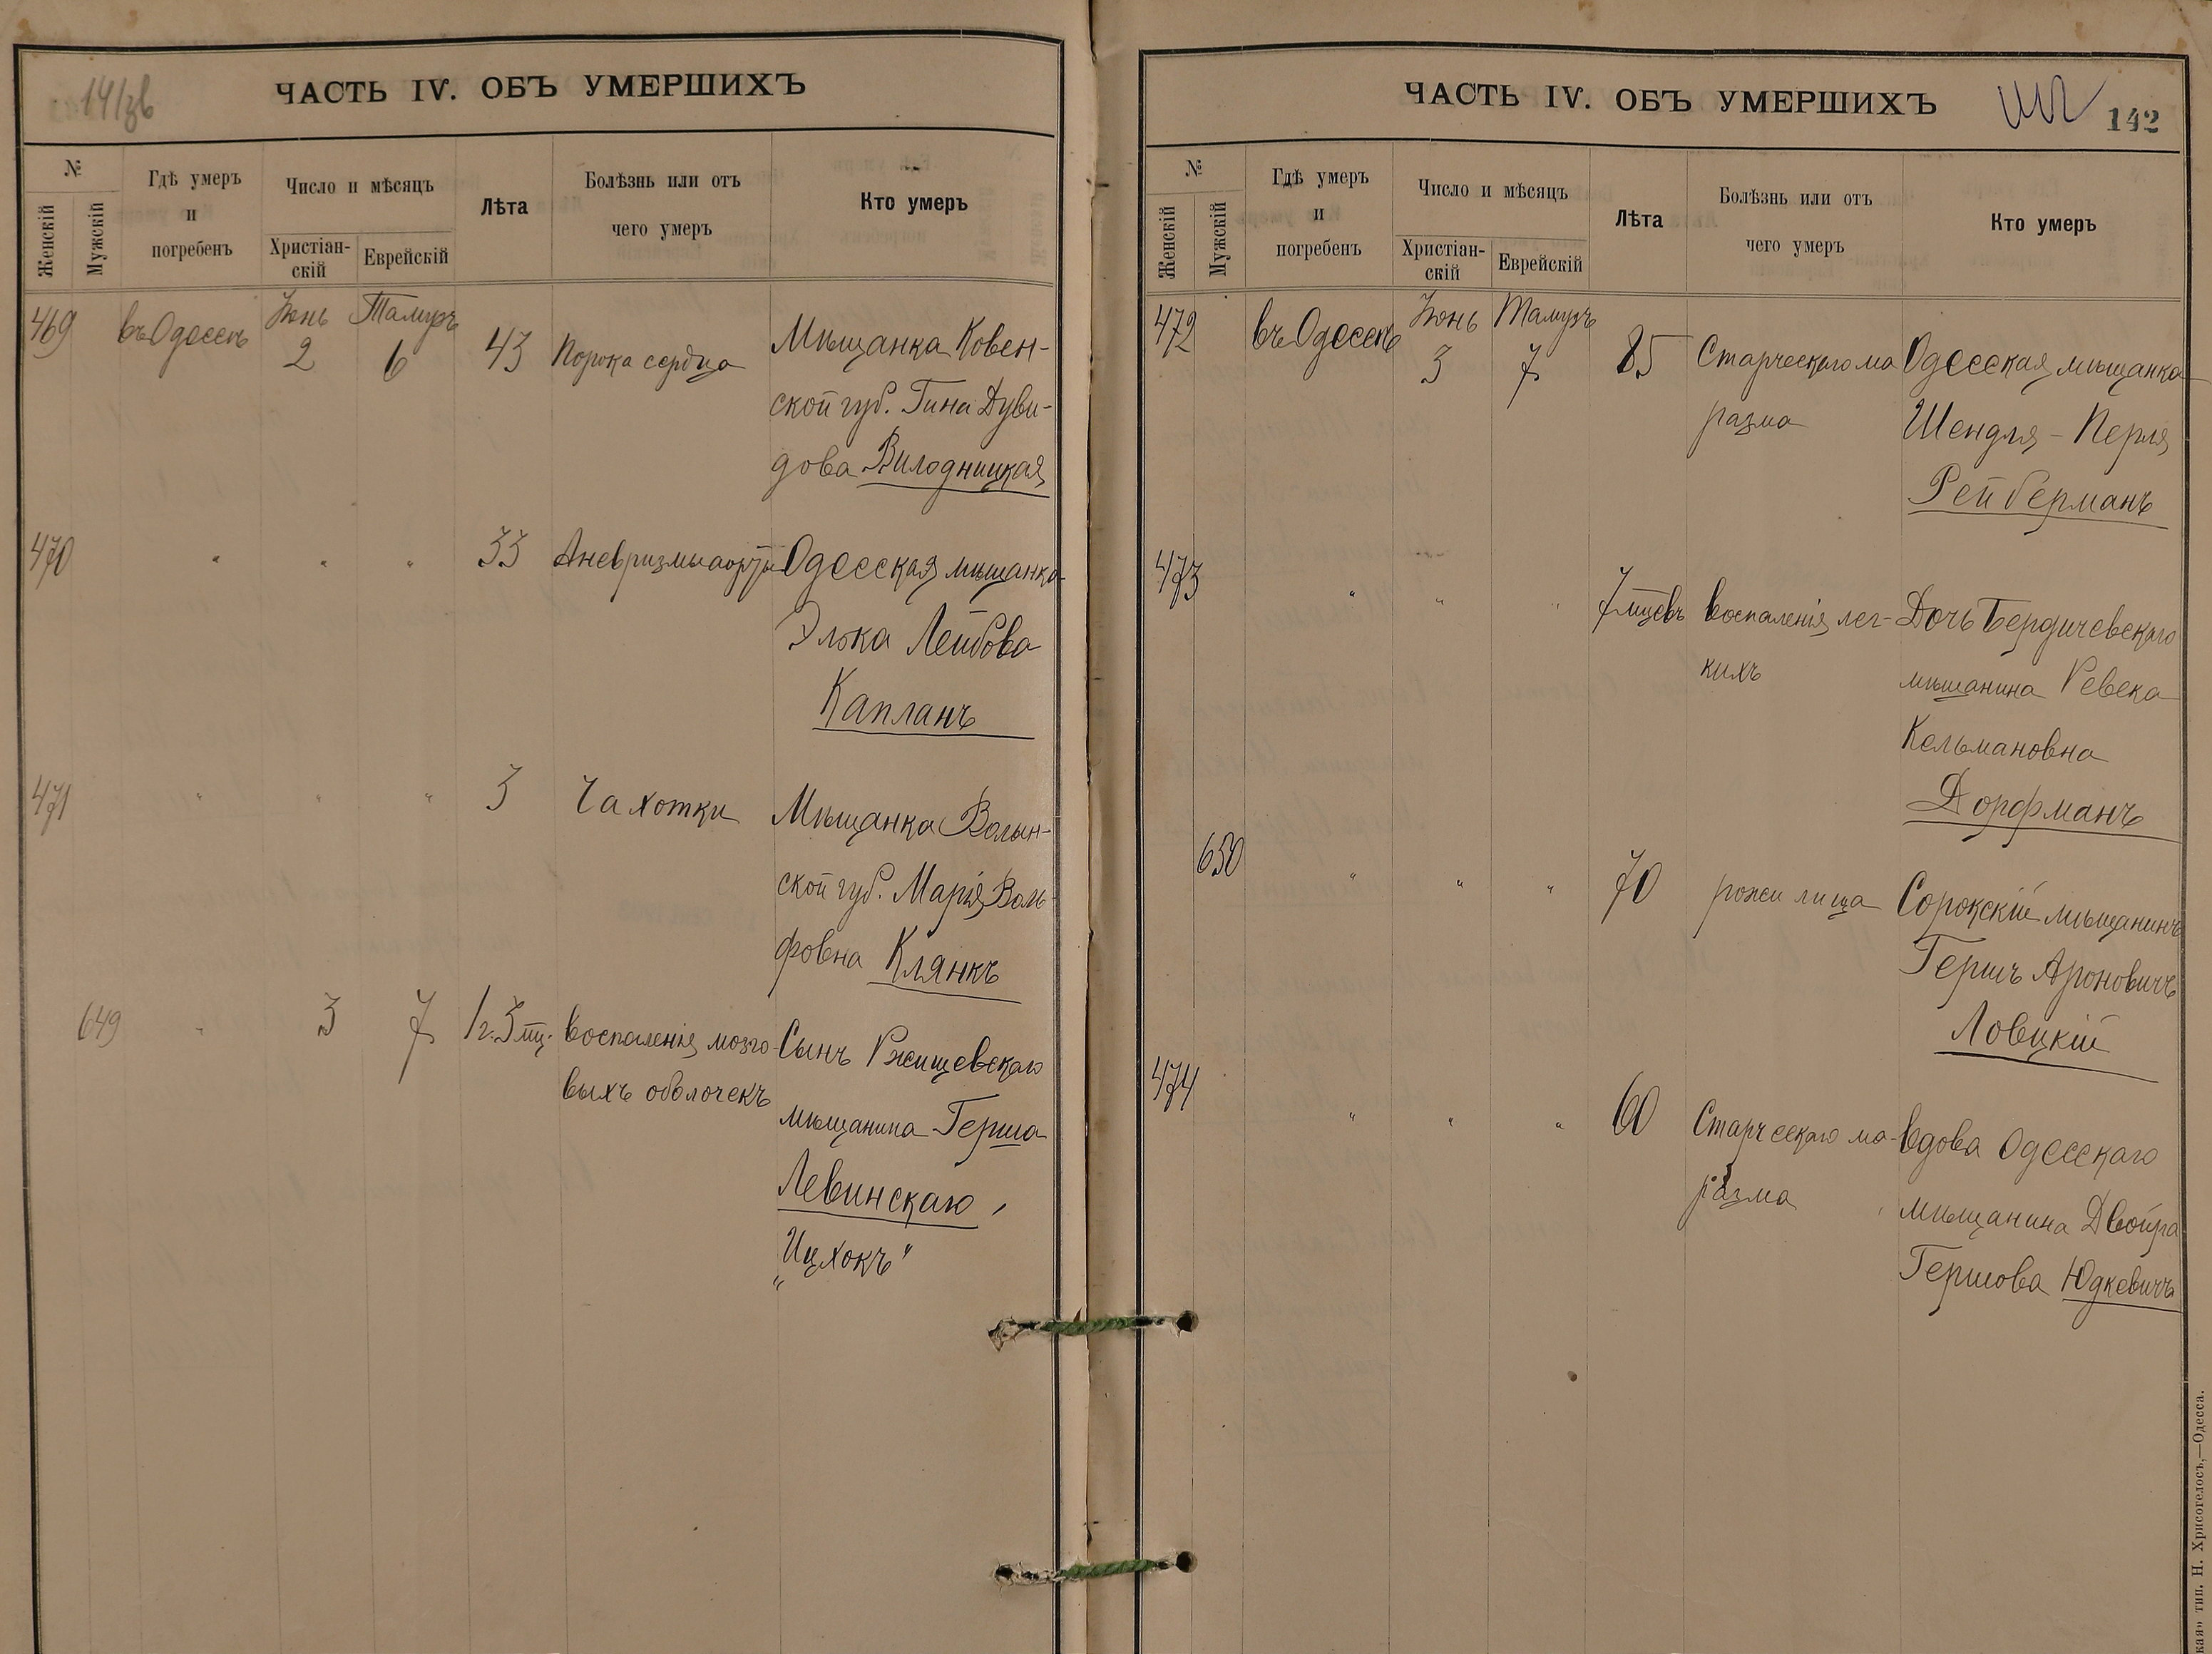 ЧАСТЬ IV. ОБЪ УМЕРШИХЪ
№
Женскій
Мужскій
Гдѣ умеръ
и
погребенъ
Число и мѣсяцъ
Христіан-
скій
Еврейскій
Лѣта
Болѣзнь или отъ
чего умеръ
Кто умеръ
469 въ Одессѣ Іюнь 2 Тамузъ 6 43 Порока сердца Мѣщанка Ковен-
ской губ. Гина Дуви-
дова Вилодницкая
470 " " " 33 Аневризмы аорты Одесская мѣщанка
Элька Лейбова
Капланъ
471 " " " 3 Чахотки Мѣщанка Волын-
ской губ. Марія Воль-
фовна Клянкъ
649 " 3 7 1 г. 3 мц. воспаленія мозго- Сынъ Ржищевскаго
выхъ оболочекъ мѣщанина Герша
Левинскаго,
„Ицхокъ"
ЧАСТЬ IV. ОБЪ УМЕРШИХЪ
142
№
Женскій
Мужскій
Гдѣ умеръ
и
погребенъ
Число и мѣсяцъ
Христіан-
скій
Еврейскій
Лѣта
Болѣзнь или отъ
чего умеръ
Кто умеръ
472 въ Одессѣ Іюнь 3 Тамузъ 7 85 Старческаго ма Одесская мѣщанка
разма Шендля - Перля
Рейберманъ
473 " " " 7 мцевъ воспаленія лег- Дочь Бердичевскаго
кихъ мѣщанина Ревека
Кельмановна
Дорфманъ
650 " " " 70 рожи лица Сорокскій мѣщанинъ
Гершъ Ароновичъ
Ловицкій
474 " " " 60 Старческаго ма- вдова Одесскаго
разма мѣщанина Двойра
Гершова Юдкевичъ
тип. Н. Хрисогелосъ,—Одесса.